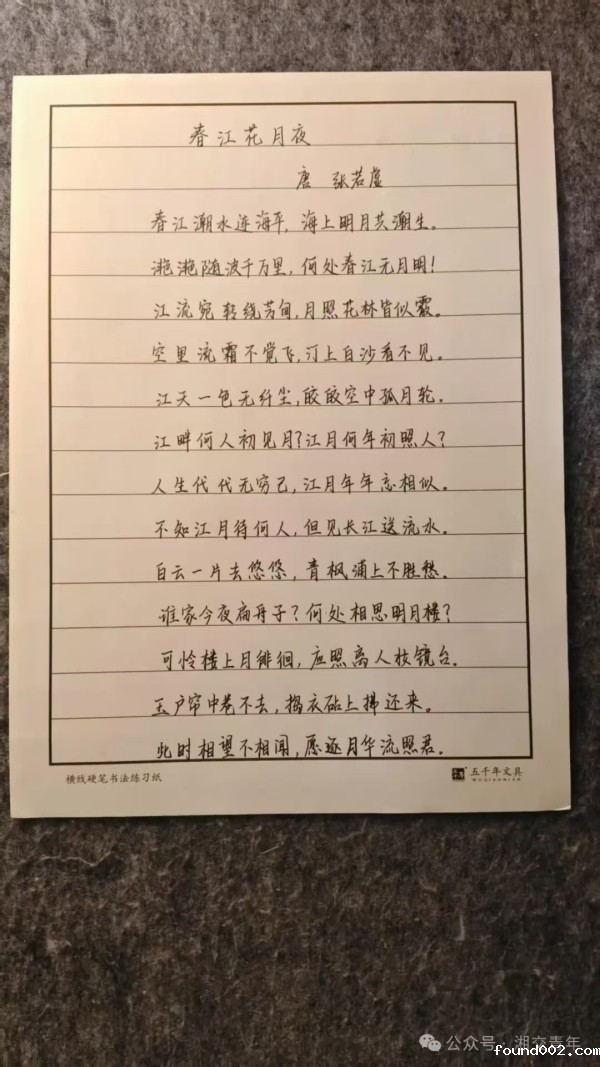 春江花月夜
唐 张若虚
春江潮水连海平,海上明月共潮生。
滟滟随波千万里,何处春江无月明!
江流宛转绕芳甸,月照花林皆似霰。
空里流霜不觉飞,汀上白沙看不见。
江天一色无纤尘,皎皎空中孤月轮。
江畔何人初见月?江月何年初照人?
人生代代无穷已,江月年年 相似。
不知江月待何人,但见长江送流水。
白云一片去悠悠,青枫浦上不胜愁。
谁家今夜扁舟子?何处相思明月楼?
可怜楼上月徘徊,应照离人 镜台。
玉户帘中卷不去,捣衣砧上拂还来。
此时相望不相闻,愿逐月华流照君。
横线硬笔书法练习纸
五千年文具
WUQIANNIAN
公众号·湘交青年
found002.com